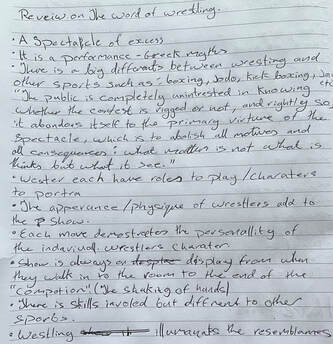 Reveiw on The word of wrestling.
• A Spectakcle of excess
• It is a performance - Greek myths
• There is a big differents between wresting and
other sports such as: boxing, Jodo, kick boxing,
"The public is completely unintrested in Knowing
whether the contest is rigged or not, and rightly so
it abandons itself to the primary virtue of the
Spectacle, which is to abolish all motives and
all consequences: what matters is not what is
thinks but what it see."
• Wester each have roles to play/charaters
to portra
• The apperance/physique of wrestlers add to
the show.
• Each move demostrates the personallity of
the indaviual wrestlers charater.
• Show is always on display from when
they walk in to the room to the end of the
"Compation" (the shaking of hands)
• There is skills involed but diffrent to other
sports.
• Westling illumanats the resemblames